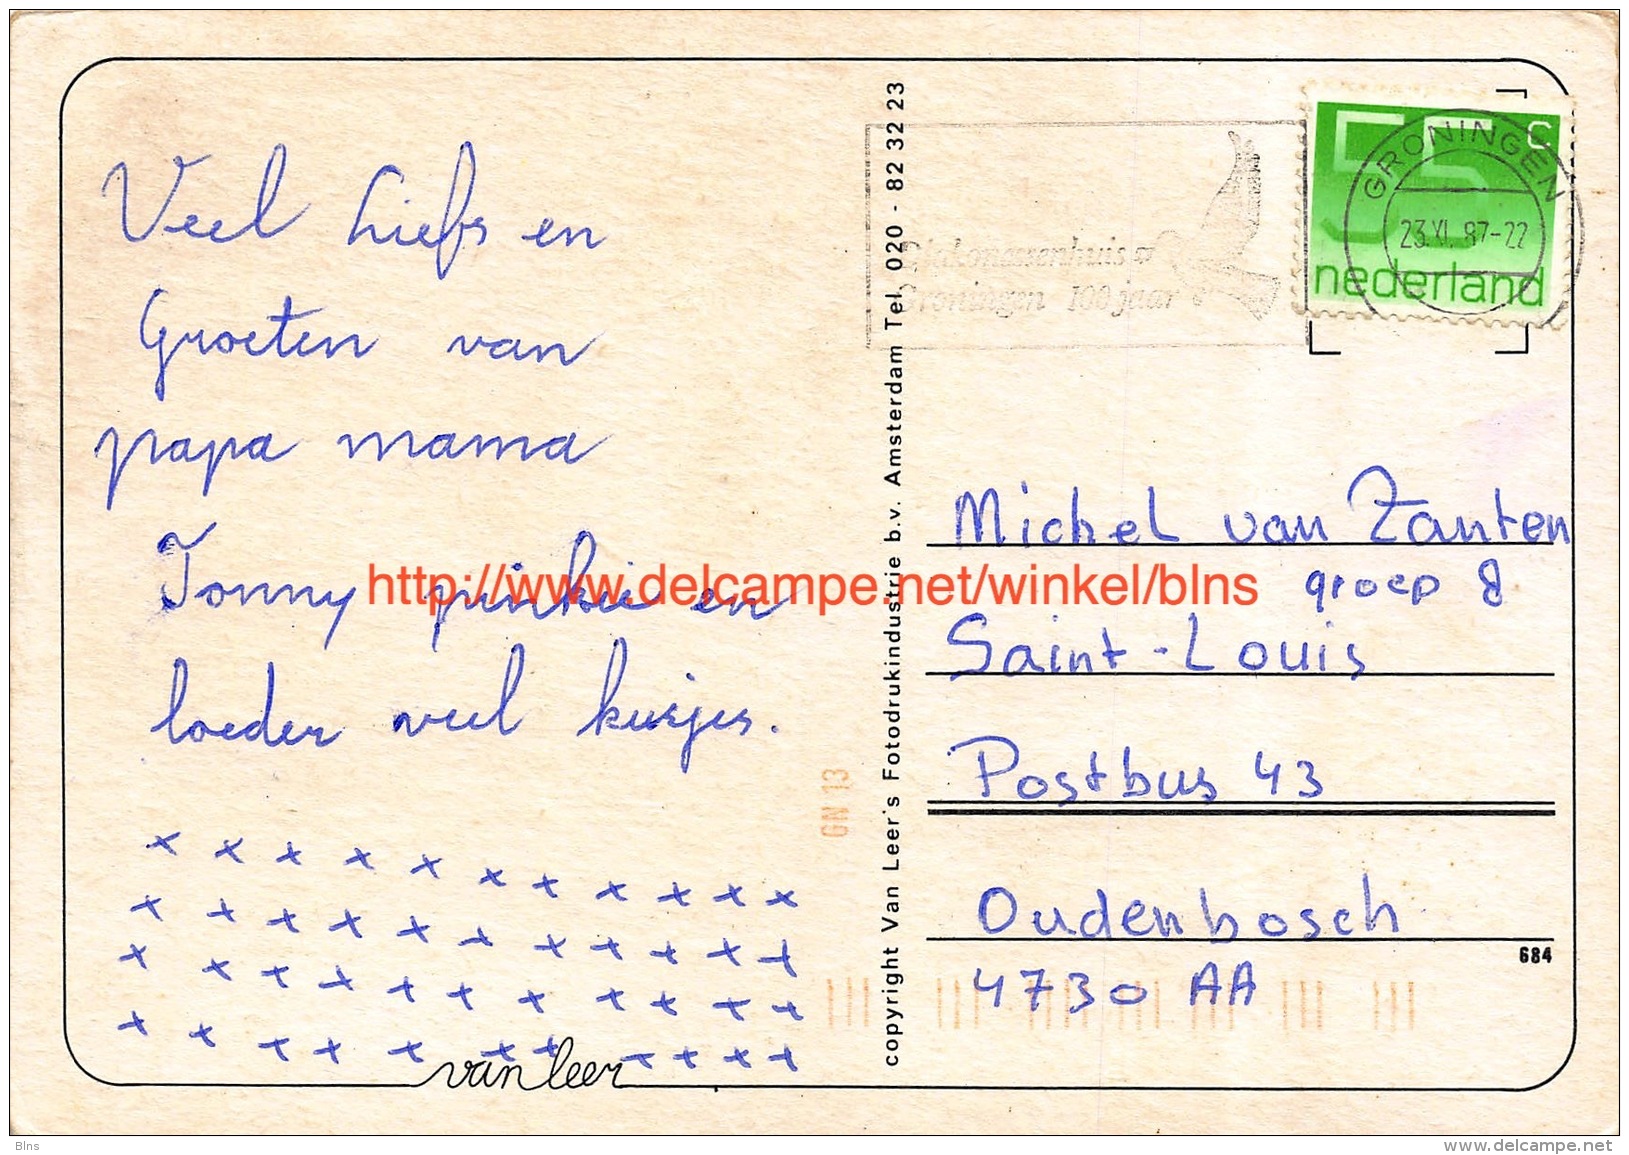 Veel Liefs en
Groeten van
papa mama
Tonny pinkie en
loeder veel kusjes.
x x x x x x x x x x x
x x x x x x x x x x x
x x x x x x x x x x x
x x x x x x x x x x x
van leer
GN 13
copyright Van Leer's Fotodrukindustrie b.v. Amsterdam Tel. 020 - 82 32 23
Diakonessenhuis
Groningen 100 jaar
55 c
nederland
GRONINGEN
23.XI.87-22
Michel van Zanten
groep 8
Saint-Louis
Postbus 43
Oudenbosch
684
4730 AA
http://www.delcampe.net/winkel/blns
Blns
www.delcampe.net